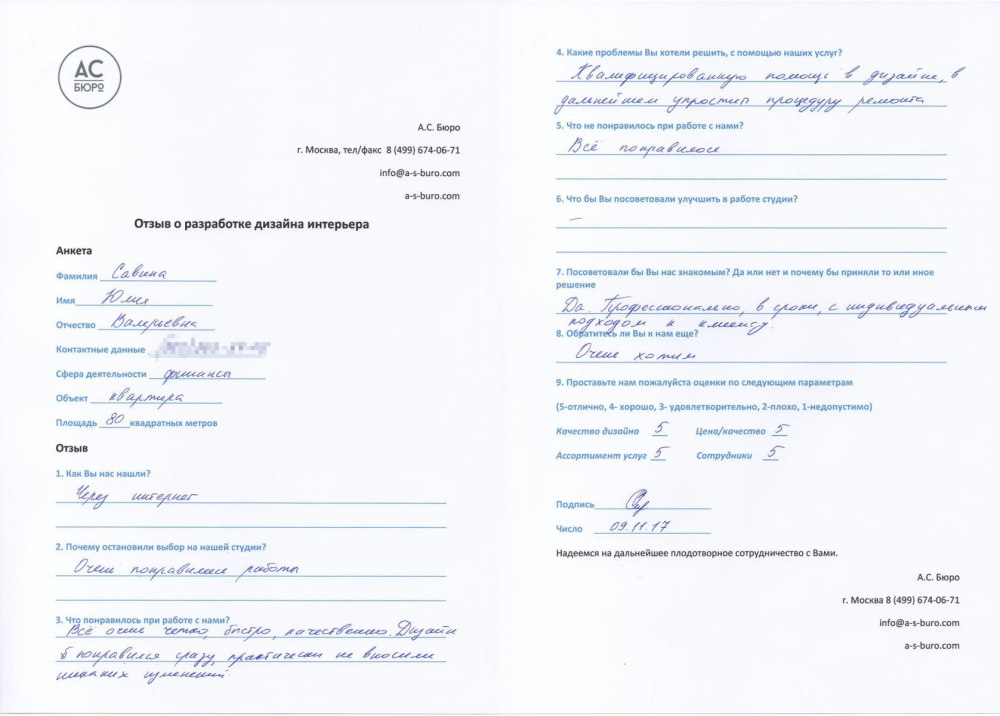 АС
БЮРО
А.С. Бюро
г. Москва, тел/факс 8 (499) 674-06-71
info@a-s-buro.com
a-s-buro.com
Отзыв о разработке дизайна интерьера
Анкета
Фамилия Савина
Имя Юлия
Отчество Валерьевна
Контактные данные
Сфера деятельности финансы
Объект квартира
Площадь 80 квадратных метров
Отзыв
1. Как Вы нас нашли?
Через интернет
2. Почему остановили выбор на нашей студии?
Очень понравились работы
3. Что понравилось при работе с нами?
Всё очень четко, быстро, качественно. Дизайн
понравился сразу, практически не вносили
никаких изменений.
4. Какие проблемы Вы хотели решить, с помощью наших услуг?
Квалифицированную помощь в дизайне, в
дальнейшем упростить процедуру ремонта
5. Что не понравилось при работе с нами?
Всё понравилось
6. Что бы Вы посоветовали улучшить в работе студии?
—
7. Посоветовали бы Вы нас знакомым? Да или нет и почему бы приняли то или иное
решение
Да. Профессионально, в сроки, с индивидуальным
подходом к клиенту.
8. Обратитесь ли Вы к нам еще?
Очень хотим
9. Проставьте нам пожалуйста оценки по следующим параметрам
(5-отлично, 4- хорошо, 3- удовлетворительно, 2-плохо, 1-недопустимо)
Качество дизайна 5 Цена/качество 5
Ассортимент услуг 5 Сотрудники 5
Подпись
Число 09.11.17
Надеемся на дальнейшее плодотворное сотрудничество с Вами.
А.С. Бюро
г. Москва 8 (499) 674-06-71
info@a-s-buro.com
a-s-buro.com